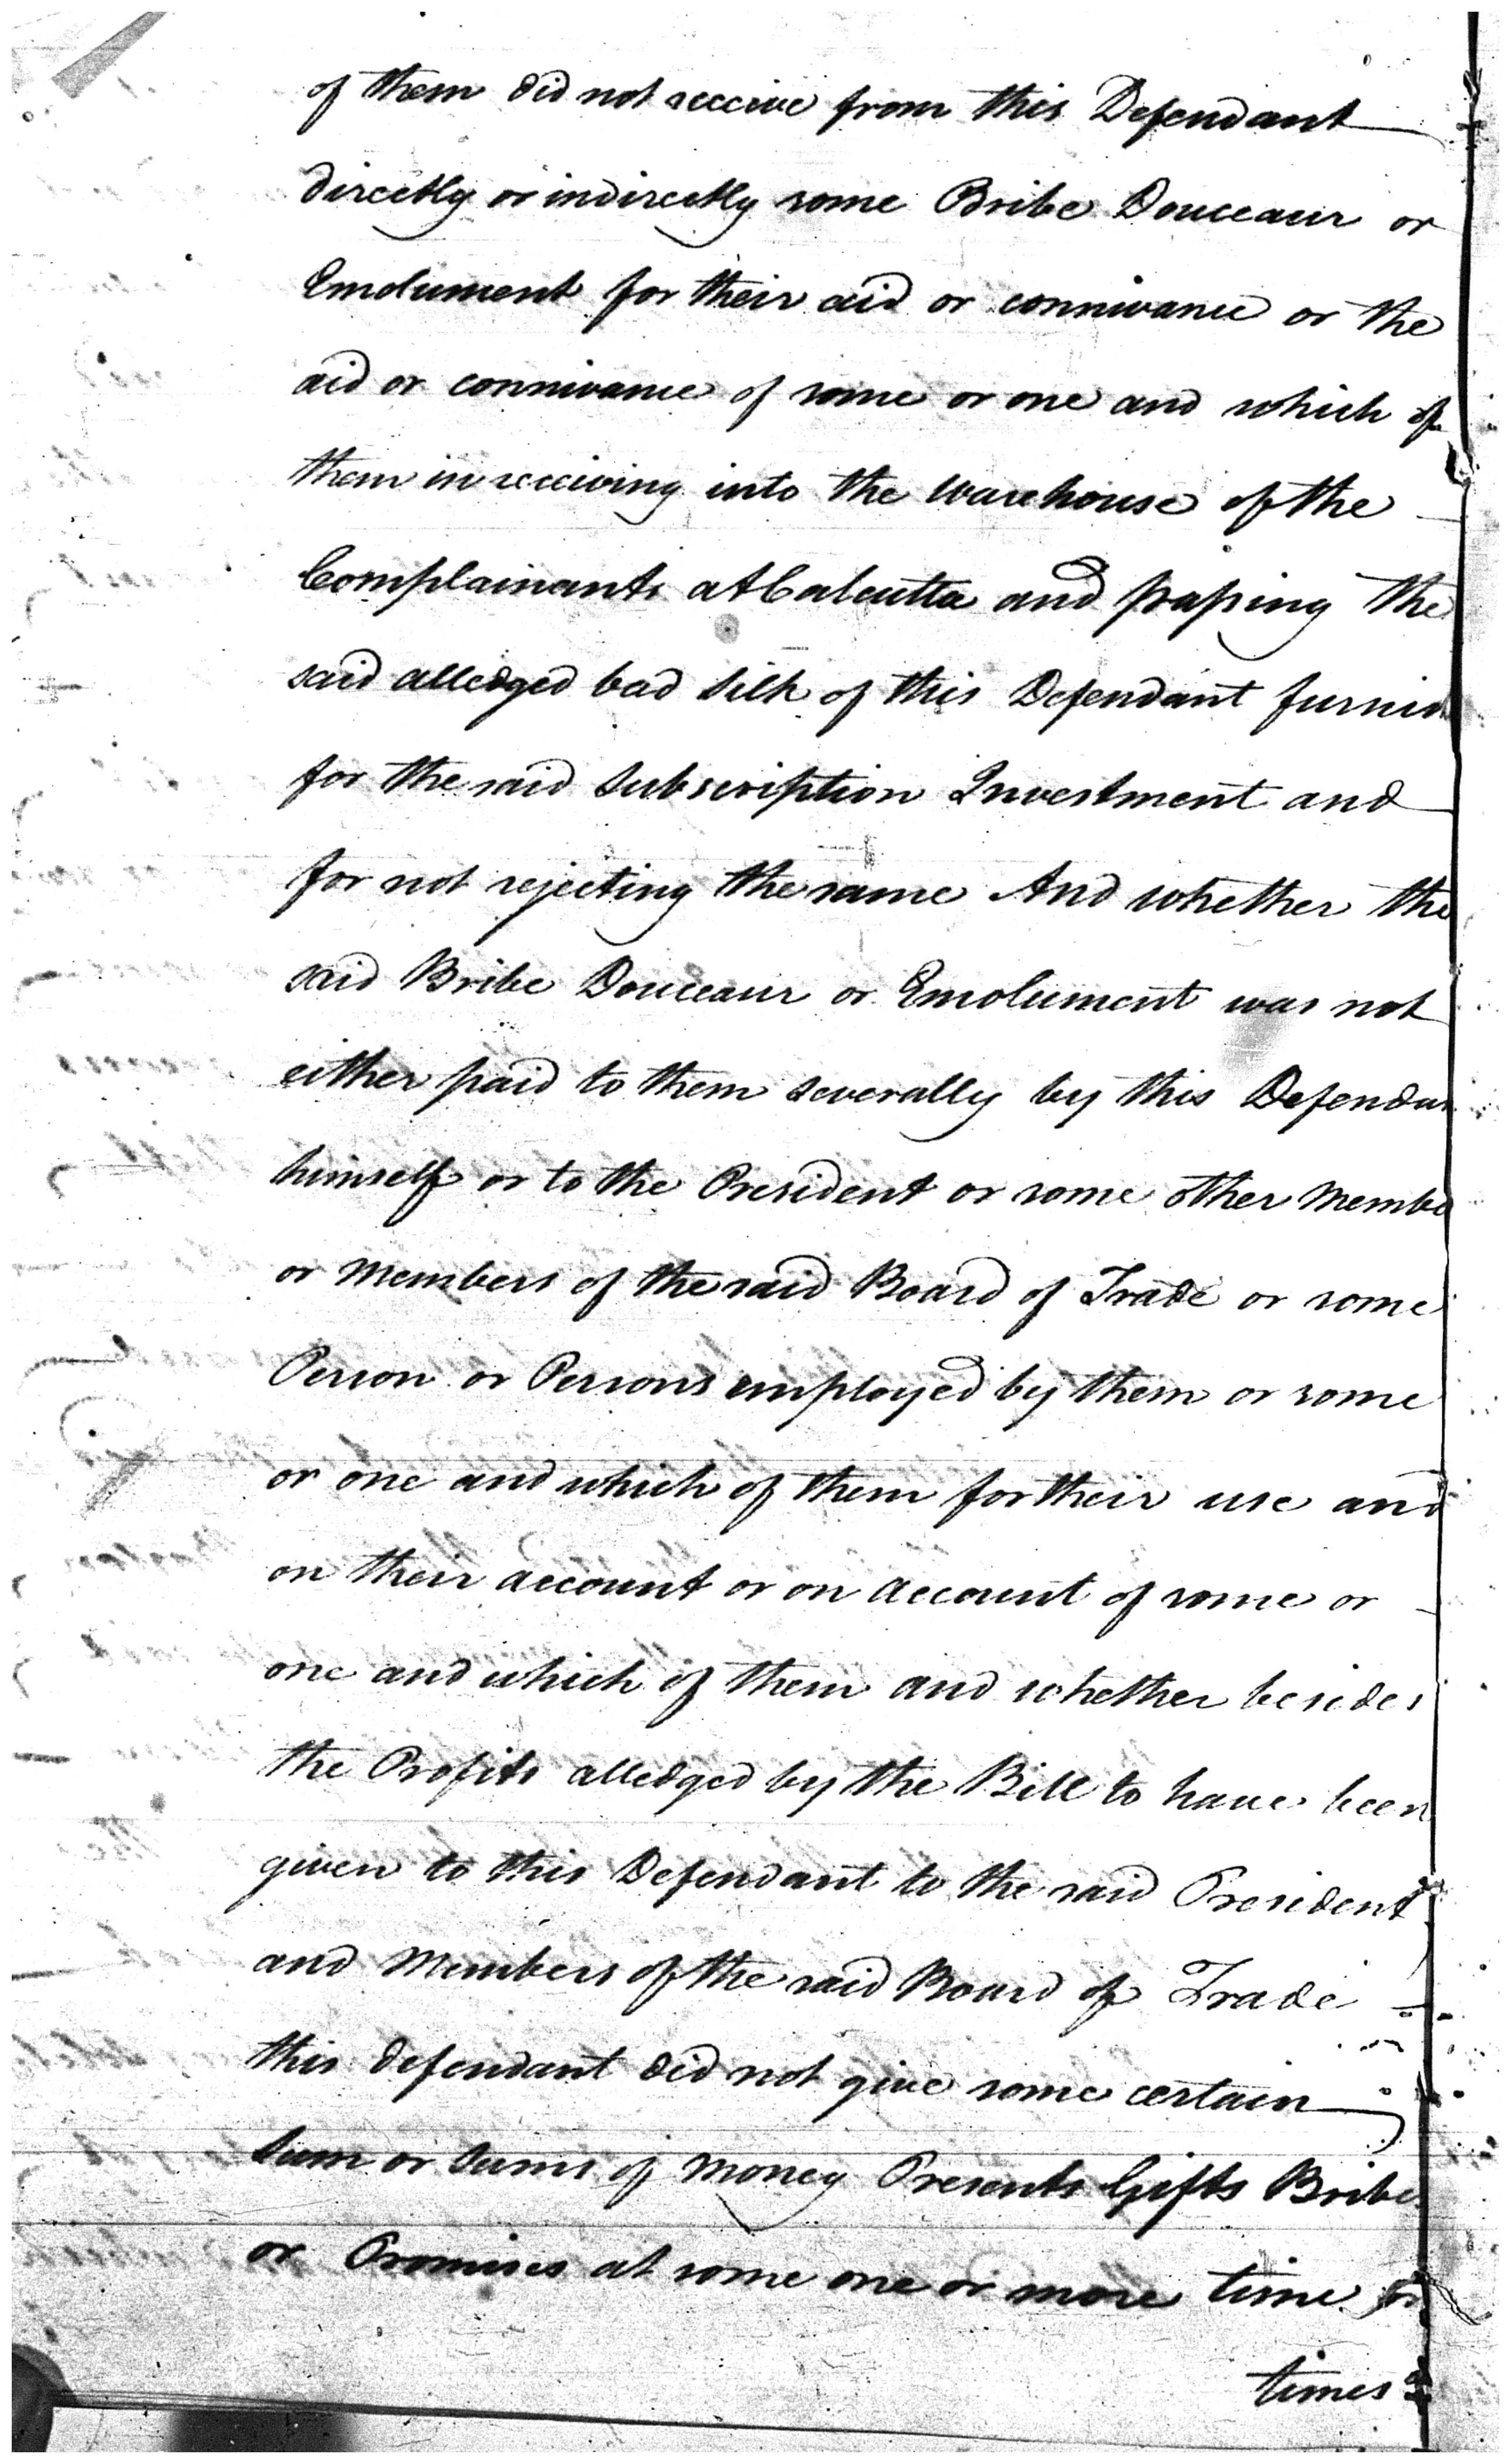 of them did not receive from this Defendant
directly or indirectly some Bribe Douceaur or
Emolument for their aid or connivance or the
aid or connivance of some or one and which of
them in receiving into the Warehouse of the
Complainants at Calcutta and passing the
said alledged bad Silk of this Defendant furnish
for the said Subscription Investment and
for not rejecting the same And whether the
said Bribe Douceaur or Emolument was not
either paid to them severally by this Defendan
himself or to the President or some other Membe
or Members of the said Board of Trade or some
Person or Persons employed by them or some
or one and which of them for their use and
on their account or on account of some or
one and which of them and whether besides
the Profits alledged by the Bill to have been
given to this Defendant to the said President
and Members of the said Board of Trade
this defendant did not give some certain
Sum or Sums of Money Presents Gifts Bribes
or Promises at some one or more time or
times